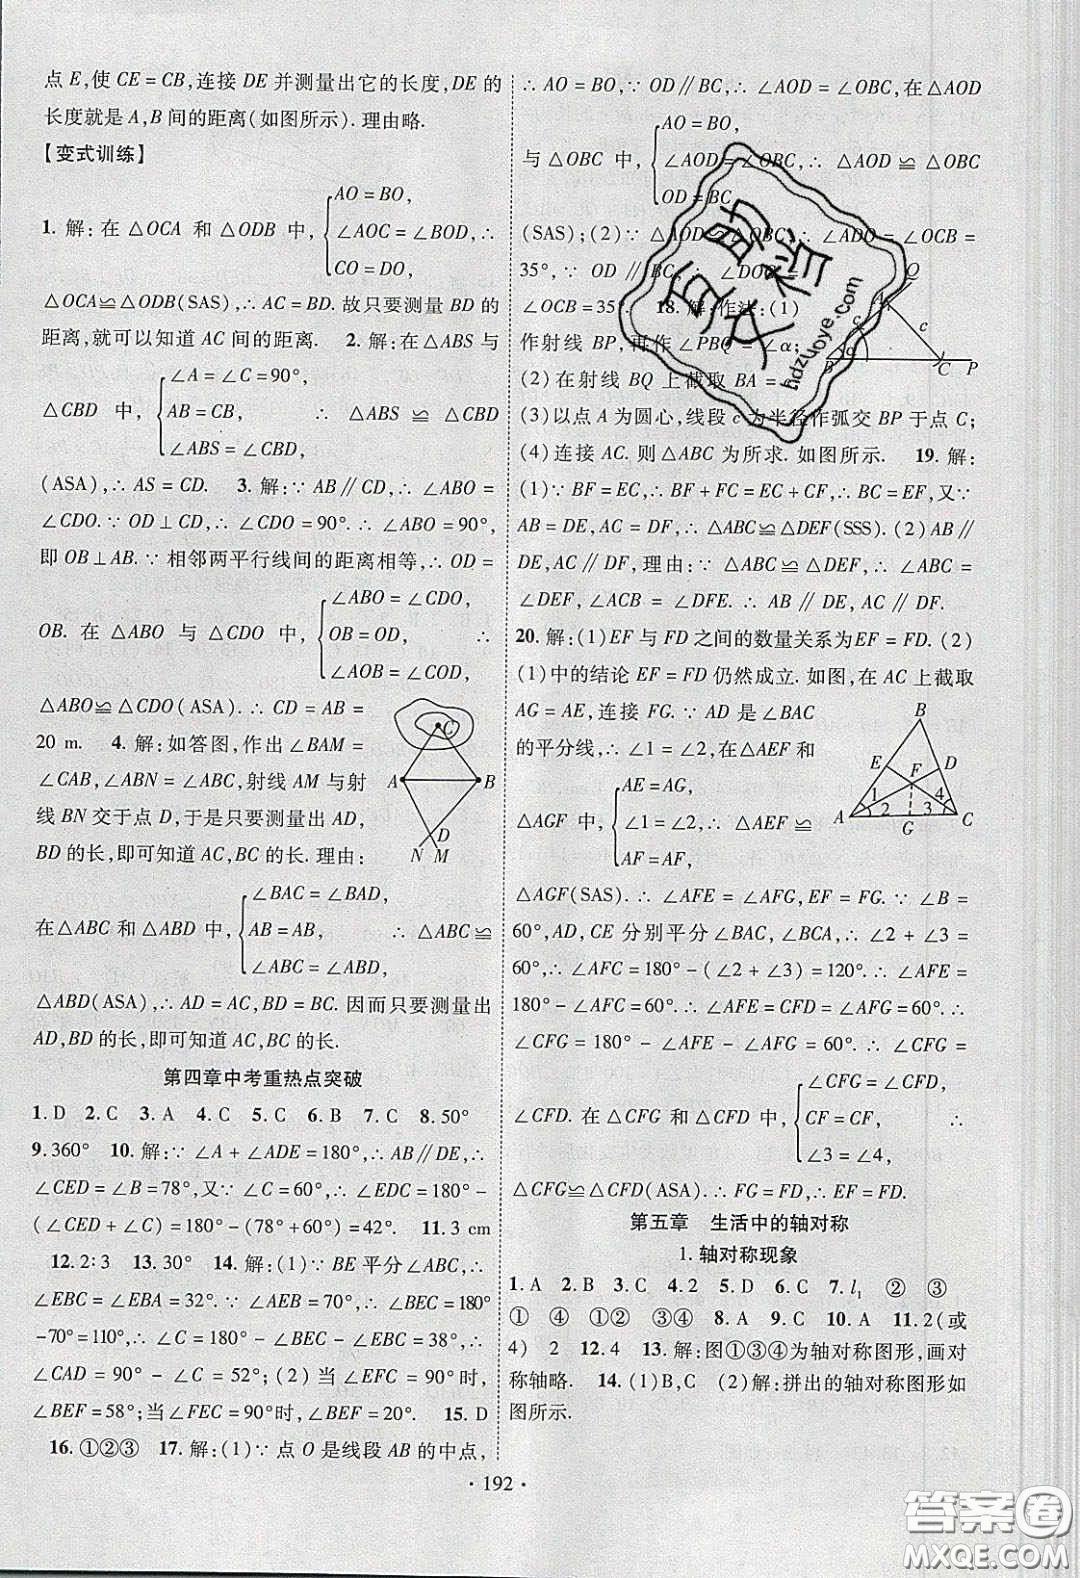 点 E,使 CE = CB,连接 DE 并测量出它的长度,DE 的
长度就是 A,B 间的距离(如图所示).理由略.
【变式训练】
AO = BO,
1. 解:在 △OCA 和 △ODB 中, ∠AOC = ∠BOD,∴
CO = DO,
△OCA≌△ODB(SAS),∴ AC = BD. 故只要测量 BD 的
距离,就可以知道 AC 间的距离. 2. 解:在 △ABS 与
∠A = ∠C = 90°,
△CBD 中, AB = CB, ∴ △ABS ≌ △CBD
∠ABS = ∠CBD,
(ASA),∴ AS = CD. 3. 解:∵ AB∥CD,∴ ∠ABO =
∠CDO. ∵ OD⊥CD,∴ ∠CDO = 90°. ∴ ∠ABO = 90°,
即 OB⊥AB. ∵ 相邻两平行线间的距离相等,∴ OD =
∠ABO = ∠CDO,
OB. 在 △ABO 与 △CDO 中, OB = OD, ∴
∠AOB = ∠COD,
△ABO≌△CDO(ASA). ∴ CD = AB =
20 m. 4. 解:如答图,作出 ∠BAM =
∠CAB,∠ABN = ∠ABC,射线 AM 与射
线 BN 交于点 D,于是只要测量出 AD,
BD 的长,即可知道 AC,BC 的长. 理由:
C
A
B
D
N M
∠BAC = ∠BAD,
在△ABC 和△ABD 中, AB = AB, ∴ △ABC≌
∠ABC = ∠ABD,
△ABD(ASA),∴ AD = AC,BD = BC. 因而只要测量出
AD,BD 的长,即可知道 AC,BC 的长.
第四章中考重热点突破
1. D 2. C 3. A 4. C 5. C 6. B 7. C 8. 50°
9. 360° 10. 解:∵ ∠A + ∠ADE = 180°,∴ AB∥DE,∴
∠CED = ∠B = 78°,又∵ ∠C = 60°,∴ ∠EDC = 180° -
(∠CED + ∠C) = 180° - (78° + 60°) = 42°. 11. 3 cm
12. 2∶3 13. 30° 14. 解:(1)∵ BE 平分 ∠ABC,∴
∠EBC = ∠EBA = 32°. ∵ ∠AEB = 70°,∴ ∠BEC = 180°
-70° = 110°,∴ ∠C = 180° - ∠BEC - ∠EBC = 38°,∴
∠CAD = 90° - ∠C = 52°; (2) 当 ∠EFC = 90° 时,
∠BEF = 58°;当 ∠FEC = 90°时,∠BEF = 20°. 15. D
16. ①②③ 17. 解:(1)∵ 点 O 是线段 AB 的中点,
∴ AO = BO,∵ OD∥BC,∴ ∠AOD = ∠OBC,在△AOD
AO = BO,
与 △OBC 中, ∠AOD = ∠OBC,∴ △AOD ≌ △OBC
OD = BC,
(SAS);(2)∵ △AOD≌△OBC,∴ ∠ADO = ∠OCB =
35°,∵ OD∥BC,∴ ∠DOC =
∠OCB = 35°. 18. 解:作法:(1)
作射线 BP,再作 ∠PBQ = ∠α;
(2) 在射线 BQ 上截取 BA =
Q
A
c
c
B
C P
(3)以点 A 为圆心,线段 c 为半径作弧交 BP 于点 C;
(4)连接 AC. 则 △ABC 为所求. 如图所示. 19. 解:
(1)∵ BF = EC,∴ BF + FC = EC + CF,∴ BC = EF,又∵
AB = DE,AC = DF,∴ △ABC≌△DEF(SSS). (2) AB∥
DE,AC∥DF. 理由:∵ △ABC≌△DEF,∴ ∠ABC =
∠DEF,∠ACB = ∠DFE. ∴ AB∥DE,AC∥DF.
20. 解:(1)EF 与 FD 之间的数量关系为EF = FD. (2)
(1)中的结论 EF = FD 仍然成立. 如图,在 AC 上截取
AG = AE,连接 FG. ∵ AD 是∠BAC
的平分线,∴ ∠1 = ∠2,在△AEF 和
AE = AG,
△AGF 中, ∠1 = ∠2,∴ △AEF ≌
AF = AF,
B
E
D
F
1
2
3
4
A
G
C
△AGF(SAS). ∴ ∠AFE = ∠AFG,EF = FG. ∵ ∠B =
60°,AD,CE 分别平分∠BAC,∠BCA,∴ ∠2 + ∠3 =
60°,∴ ∠AFC = 180° - (∠2 + ∠3) = 120°. ∴ ∠AFE =
180° - ∠AFC = 60°. ∴ ∠AFE = ∠CFD = ∠AFG = 60°. ∴
∠CFG = 180° - ∠CFD - ∠AFG = 60°. ∴ ∠CFG =
∠CFG = ∠CFD,
∠CFD. 在 △CFG 和△CFD 中, CF = CF, ∴
∠3 = ∠4,
△CFG≌△CFD(ASA). ∴ FG = FD,∴ EF = FD.
第五章 生活中的轴对称
1. 轴对称现象
1. A 2. B 3. C 4. 2 5. D 6. C 7. l₁ ② ③
① ④ ①② ③④ 8. A 9. C 10. A 11. 2(或
4) 2 12. 4 13. 解:图①③④为轴对称图形,画对
称轴略. 14. (1)B,C (2)解:拼出的轴对称图形如
图所示.
· 192 ·
互助文档
hdzuoye.com
答案圈
MXQE.COM